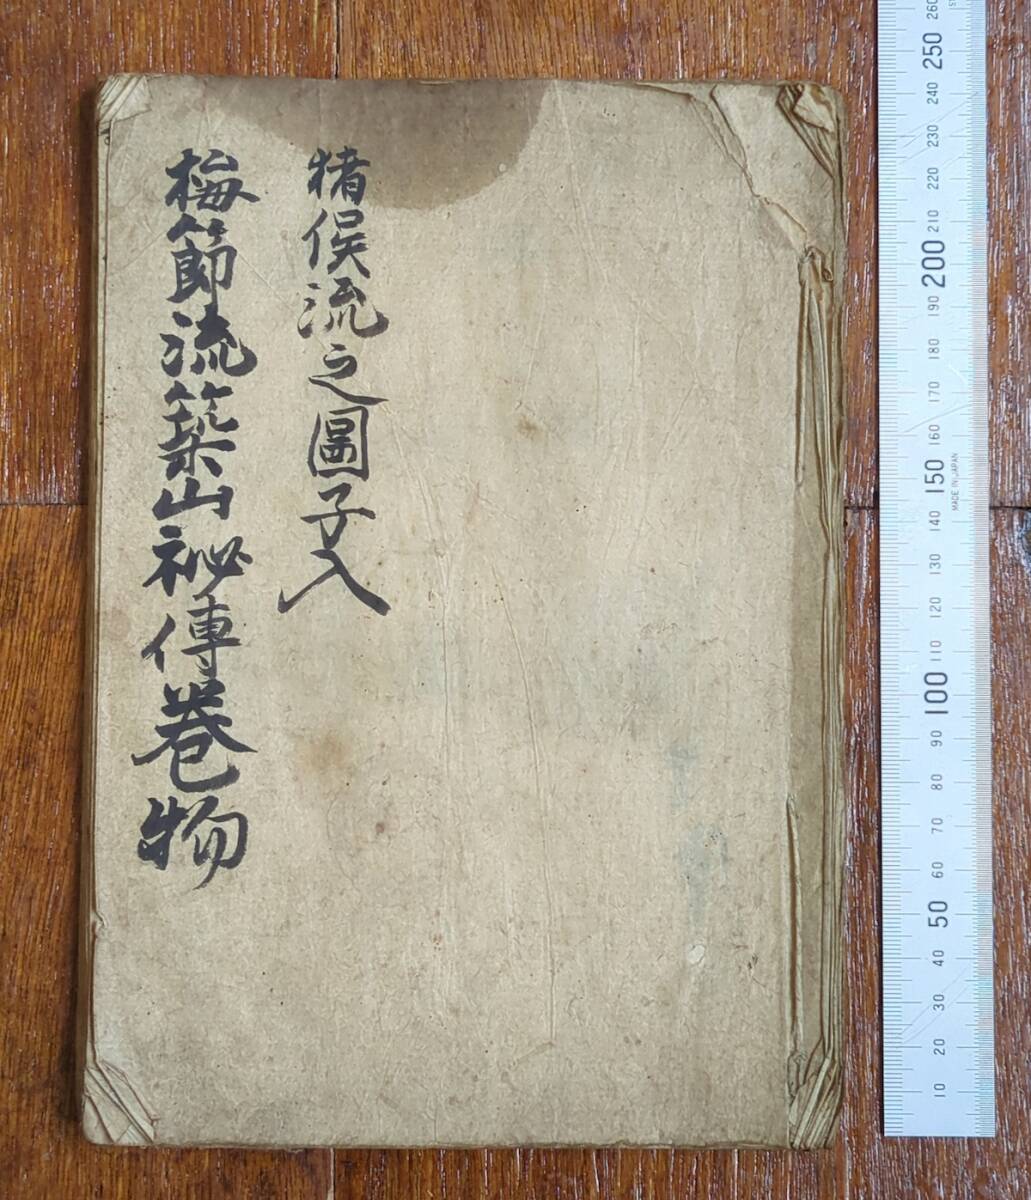 猪俣流之圖子入
梅節流築山祕傳巻物
260
250
240
230
220
210
200
190
180
170
160
150
MADE IN JAPAN
140
130
120
110
100
90
80
70
60
50
40
30
20
10